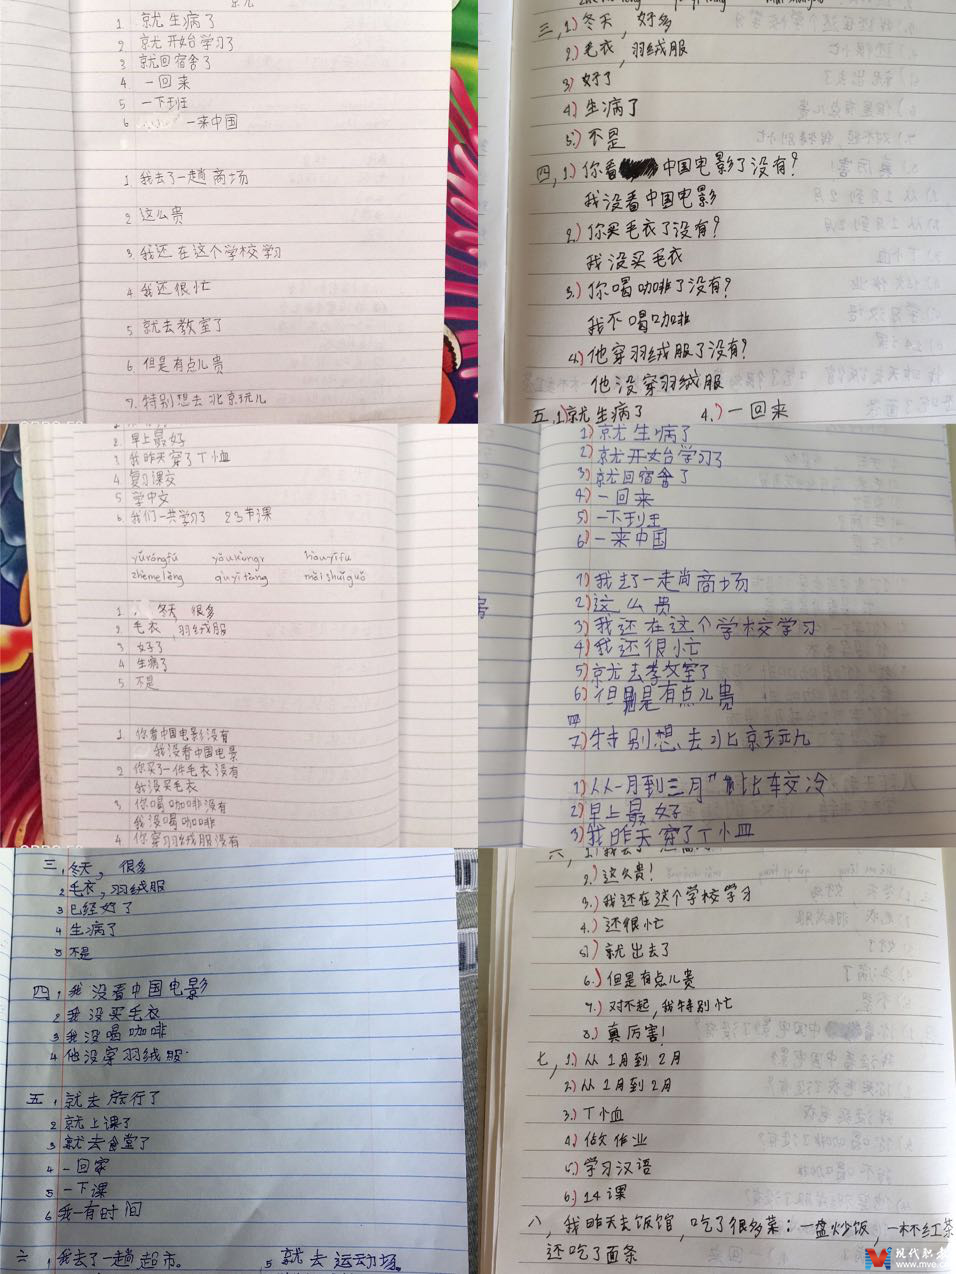 就
1. 就生病了
2 就开始学习了
3 就回宿舍了
4 一回来
5 一下班
6 一来中国
1. 我去了一趟商场
2 这么贵
3. 我还在这个学校学习
4 我还很忙
5 就去教室了
6. 但是有点儿贵
7. 特别想去北京玩儿
三,1) 冬天,好多
2) 毛衣,羽绒服
3) 好了
4) 生病了
5) 不是
四,1) 你看中国电影了没有?
我没看中国电影
2) 你买毛衣了没有?
我没买毛衣
3.) 你喝咖啡了没有?
我不喝咖啡
4.) 他穿羽绒服了没有?
他没穿羽绒服
五,1)就生病了 4.)一回来
2 早上最好
3 我昨天穿了T恤
4 复习课文
5 学中文
6. 我们一共学习了 23节课
yǔróngfú yǒukòngr
zhèmelěng qùyītàng mǎishuǐguǒ
1. 冬天 很多
2. 毛衣,羽绒服
3 好了
4 生病了
5 不是
1 你看中国电影没有
我没看中国电景
2 你买了一件毛衣没有
我没买毛衣
3 你喝咖啡没有
我没喝咖啡
4 你穿羽绒服没有
1) 就生病了
2) 就开始学习了
3) 就回宿舍了
4) 一回来
5) 一下班
6) 一来中国
1) 我去了一趟商场
2) 这么贵
3) 我还在这个学校学习
4) 我还很忙
5) 就去教室了
6) 但是有点儿贵
7) 特别想去北京玩儿
1) 从一月到三月 比较冷
2) 早上最好
3) 我昨天穿了T恤
三,冬天, 很多
2 毛衣,羽绒服
3 已经好了
4 生病了
5 不是
四,我没看中国电影
2 我没买毛衣
3 我没喝咖啡
4 他没穿羽绒服.
五,就去旅行了
2 就上课了
3 就去食堂了
4 一回家
5 一下课
6 我一有时间
六,我去了一趟超市。 5 就去运动场。
六,
2.) 这么贵!
3.) 我还在这个学校学习
4.) 还很忙
5) 就出去了
6.) 但是有点儿贵
7.) 对不起,我特别忙
8.) 真厉害!
七,1.) 从1月到2月
2) 从1月到2月
3.) T恤
4.) 做作业
5.) 学习汉语
6.) 14课
八,我昨天去饭馆,吃了很多菜:一盘炒饭,一杯红茶
还吃了面条
现代职教
www.mve.c